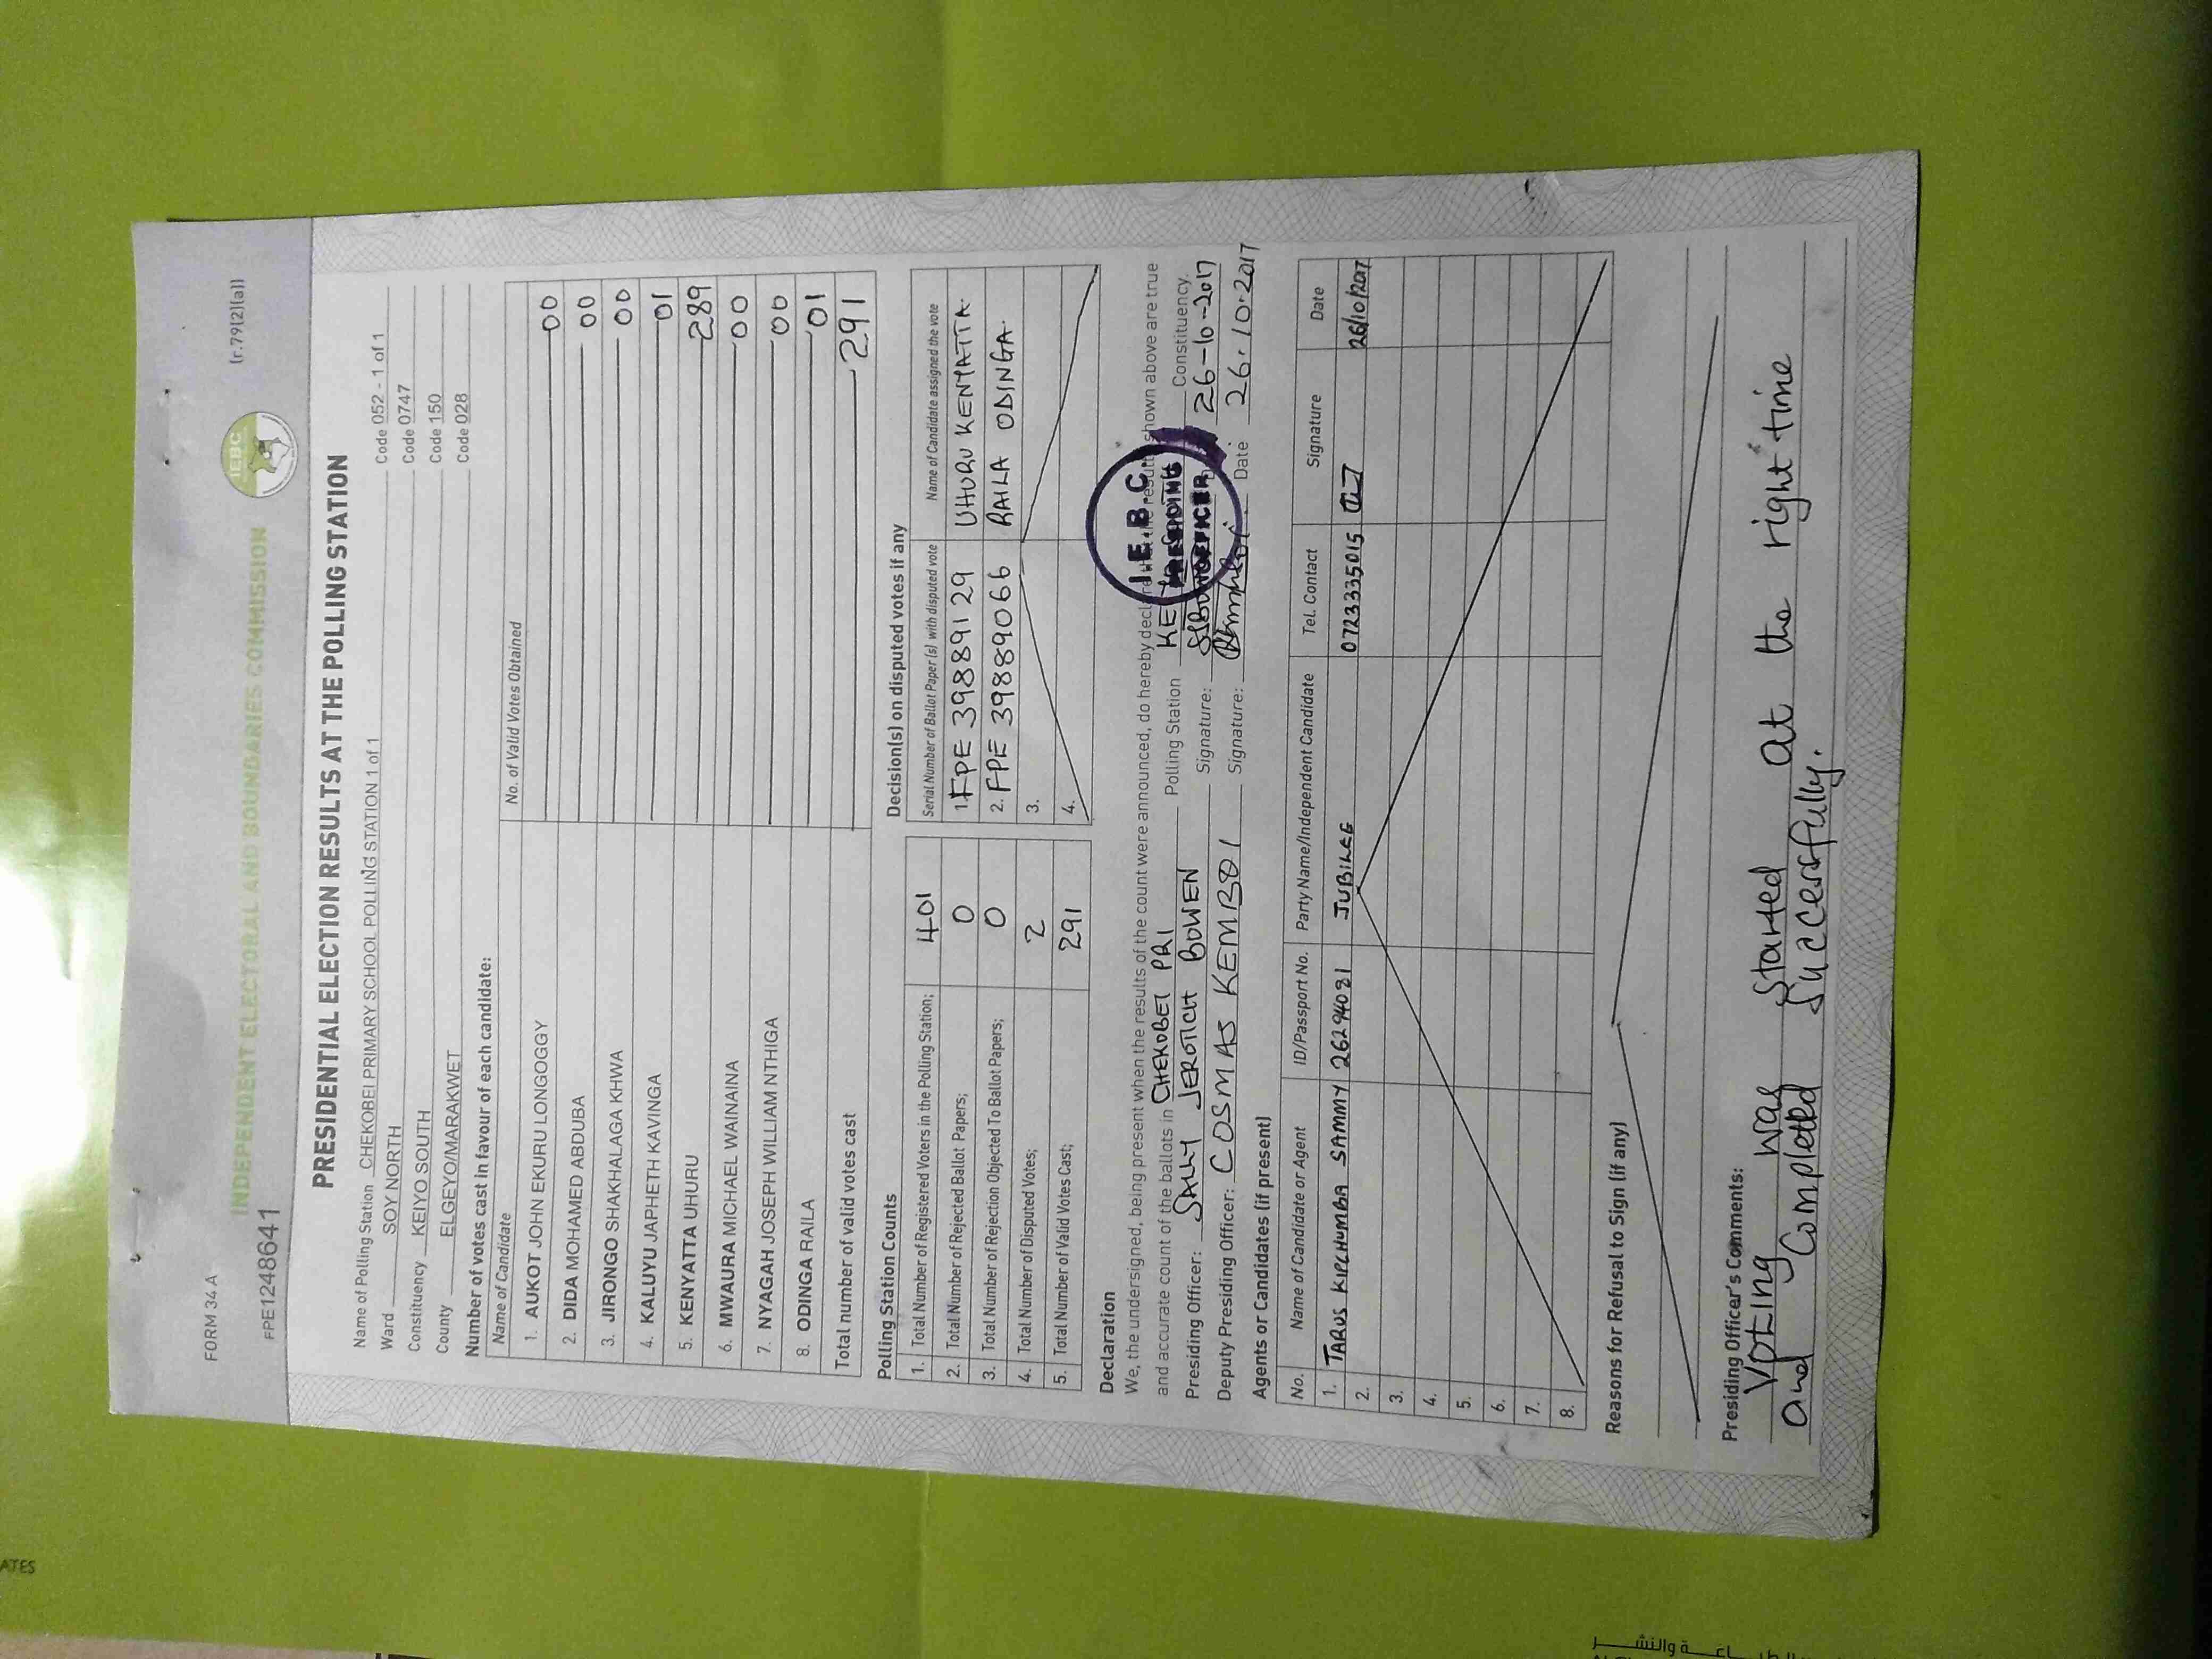 FORM 34 A
(r.79(2)(a))
FPE1248641
INDEPENDENT ELECTORAL AND BOUNDARIES COMMISSION
IEBC
PRESIDENTIAL ELECTION RESULTS AT THE POLLING STATION
Name of Polling Station CHEKOBEI PRIMARY SCHOOL POLLING STATION 1 of 1 Code 052 - 1 of 1
Ward SOY NORTH Code 0747
Constituency KEIYO SOUTH Code 150
County ELGEYO/MARAKWET Code 028
Number of votes cast in favour of each candidate:
Name of Candidate No. of Valid Votes Obtained
1. AUKOT JOHN EKURU LONGOGGY 00
2. DIDA MOHAMED ABDUBA 00
3. JIRONGO SHAKHALAGA KHWA 00
4. KALUYU JAPHETH KAVINGA 01
5. KENYATTA UHURU 289
6. MWAURA MICHAEL WAINAINA 00
7. NYAGAH JOSEPH WILLIAM NTHIGA 00
8. ODINGA RAILA 01
Total number of valid votes cast 291
Polling Station Counts
1. Total Number of Registered Voters in the Polling Station; 401
2. Total Number of Rejected Ballot Papers; 0
3. Total Number of Rejection Objected To Ballot Papers; 0
4. Total Number of Disputed Votes; 2
5. Total Number of Valid Votes Cast; 291
Decision(s) on disputed votes if any
Serial Number of Ballot Paper (s) with disputed vote Name of Candidate assigned the vote
1. FPE 39889129 UHURU KENYATTA.
2. FPE 39889066 RAILA ODINGA.
3.
4.
Declaration
We, the undersigned, being present when the results of the count were announced, do hereby declare that the results shown above are true
and accurate count of the ballots in CHEKOBEI PRI Polling Station Constituency.
Presiding Officer: SALLY JEROTICH BOWEN Signature: 26-10-2017
Deputy Presiding Officer: COSMAS KEMBOI Signature: Date 26.10.2017
I.E.B.C.
PRESIDING
OFFICER
Agents or Candidates (if present)
No. Name of Candidate or Agent ID/Passport No. Party Name/Independent Candidate Tel. Contact Signature Date
1. TARUS KIPCHUMBA SAMMY 26294081 JUBILEE 0723335015 26/10/2017
2.
3.
4.
5.
6.
7.
8.
Reasons for Refusal to Sign (if any)
Presiding Officer's Comments:
Voting was started at the right time
and completed successfully.
ATES